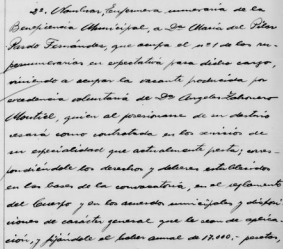 2º. Nombrar, Enfermera numeraria de la
Beneficencia Municipal, a Dª María del Pilar
Pardo Fernández, que ocupa el nº 1 de las su-
pernumerarias en expectativa para dicho cargo,
viniendo a ocupar la vacante producida por
excedencia voluntaria de Dª Angeles Zahonero
Montiel, quien al posesionarse de su destino
cesará como contratada en los servicios de
su especialidad que actualmente presta; corres-
pondiéndole los derechos y deberes establecidos
en las bases de la convocatoria, en el reglamento
del Cuerpo y en los acuerdos municipales y disposi-
ciones de carácter general que le sean de aplica-
ción, y fijándole el haber anual de 17.000.- pesetas,